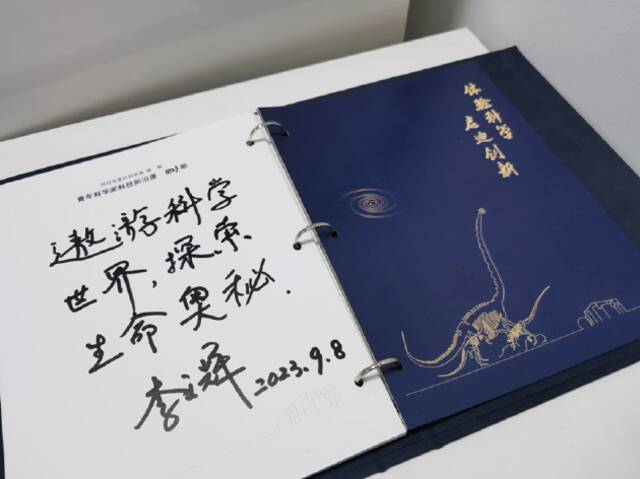 青年科学家科技前沿课
遨游科学
世界,探索
生命奥秘.
2023.9.8
体验科学
启迪创新